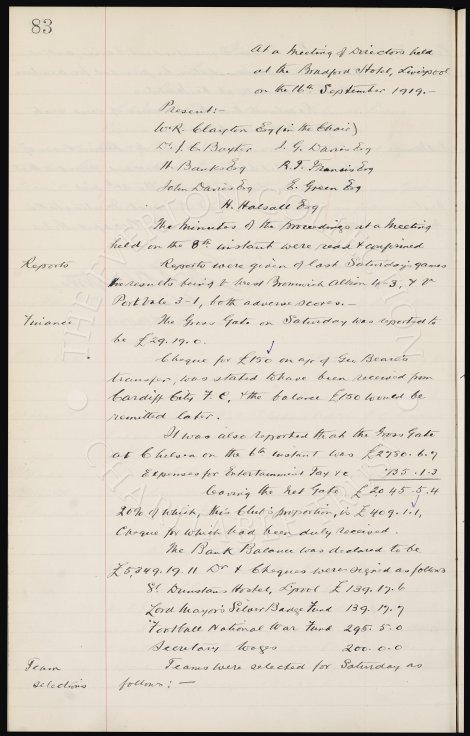 83
At a Meeting of Directors held
at the Bradford Hotel, Liverpool
on the 16th September 1919.-
Present:-
W.R. Clayton Esq (in the Chair)
Dr. J. C. Baxter J. G. Davies Esq
H. Banks Esq R. T. Francis Esq
John Davies Esq E. Green Esq
H. Halsall Esq
The Minutes of the proceedings at a Meeting
held on the 8th instant were read & confirmed
Reports Reports were given of last Saturday's games
the results being v West Bromwich Albion 4-3, & v
Port Vale 3-1, both adverse scores.-
Finance The Gross Gate on Saturday was reported to
be £29.19.0.
Cheque for £150 on a/c of Geo Beare's
transfer, was stated to have been received from
Cardiff City F.C, & the balance £150 would be
remitted later.
It was also reported that the Gross Gate
at Chelsea on the 6th instant was £2780.6.7
Expenses for Entertainment Tax &c 735.1.3
leaving the Net Gate £2045.5.4
20% of which, this Club's proportion, is £409.1.1,
Cheque for which had been duly received.
The Bank Balance was declared to be
£5,349.19.11 Dr & Cheques were signed as follows
St. Dunstans Hostel, L'pool £139.17.6
Lord Mayor's Silver Badge Fund 139.17.7
Football National War Fund 295.5.0
Secretary Wages 200.0.0
Team Teams were selected for Saturday as
selections follows:-